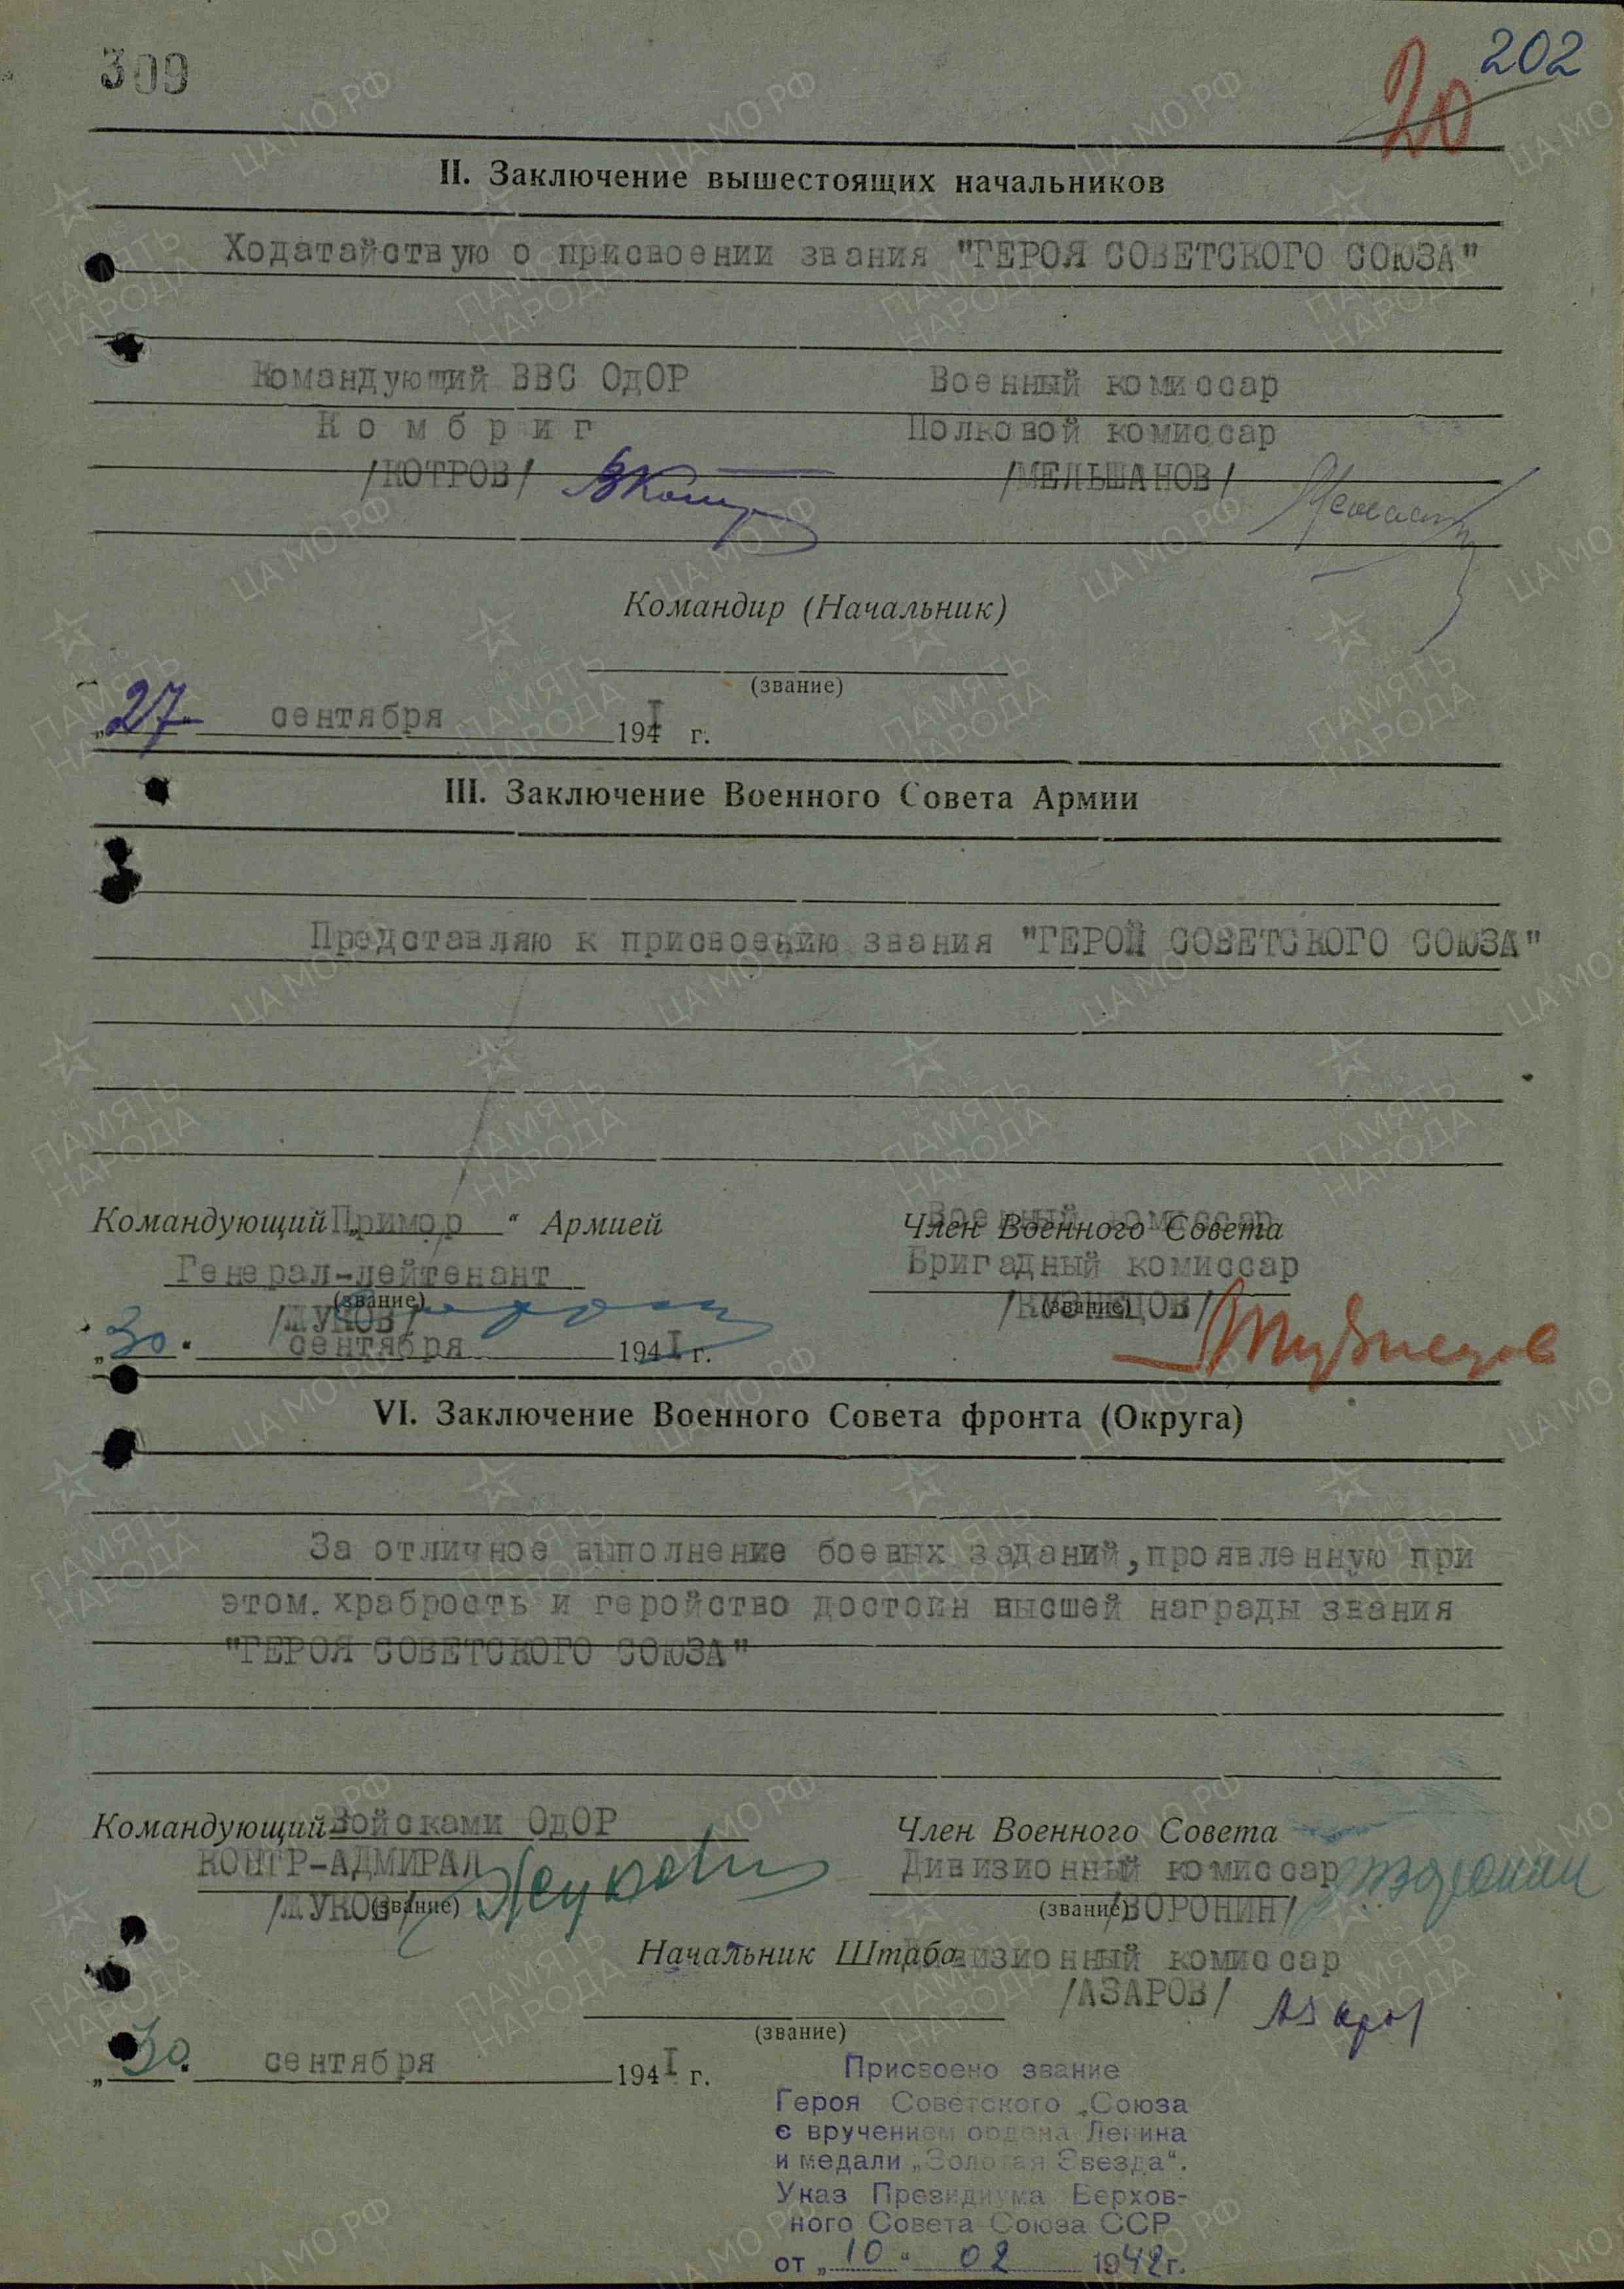 309
202
20
II. Заключение вышестоящих начальников
Ходатайствую о присвоении звания "ГЕРОЯ СОВЕТСКОГО СОЮЗА"
Командующий ВВС ОдОР
Военный комиссар
Комбриг
Полковой комиссар
/КОТРОВ/
/МЕЛЬШАНОВ/
Командир (Начальник)
(звание)
„27" сентября 1941 г.
III. Заключение Военного Совета Армии
Представляю к присвоению звания "ГЕРОЙ СОВЕТСКОГО СОЮЗА"
Командующий „Примор“ Армией
Член Военного Совета
Военный комиссар
Генерал-лейтенант
Бригадный комиссар
(звание)
(звание)
/КУЗНЕЦОВ/
Кузнецов
„30" сентября 1941 г.
VI. Заключение Военного Совета фронта (Округа)
За отличное выполнение боевых заданий, проявленную при
этом. храбрость и геройство достоин высшей награды звания
"ГЕРОЯ СОВЕТСКОГО СОЮЗА"
Командующий Войсками ОдОР
Член Военного Совета
КОНТР-АДМИРАЛ
Дивизионный комиссар
/ЖУКОВ/
(звание)
Жуков
(звание)
/ВОРОНИН/
Начальник Штаба
Дивизионный комиссар
/АЗАРОВ/
Азаров
(звание)
„30" сентября 1941 г.
Присвоено звание
Героя Советского Союза
с вручением ордена Ленина
и медали „Золотая Звезда“.
Указ Президиума Верхов-
ного Совета Союза ССР
от „10“ 02 1942 г.
ЦА МО РФ
ПАМЯТЬ
НАРОДА